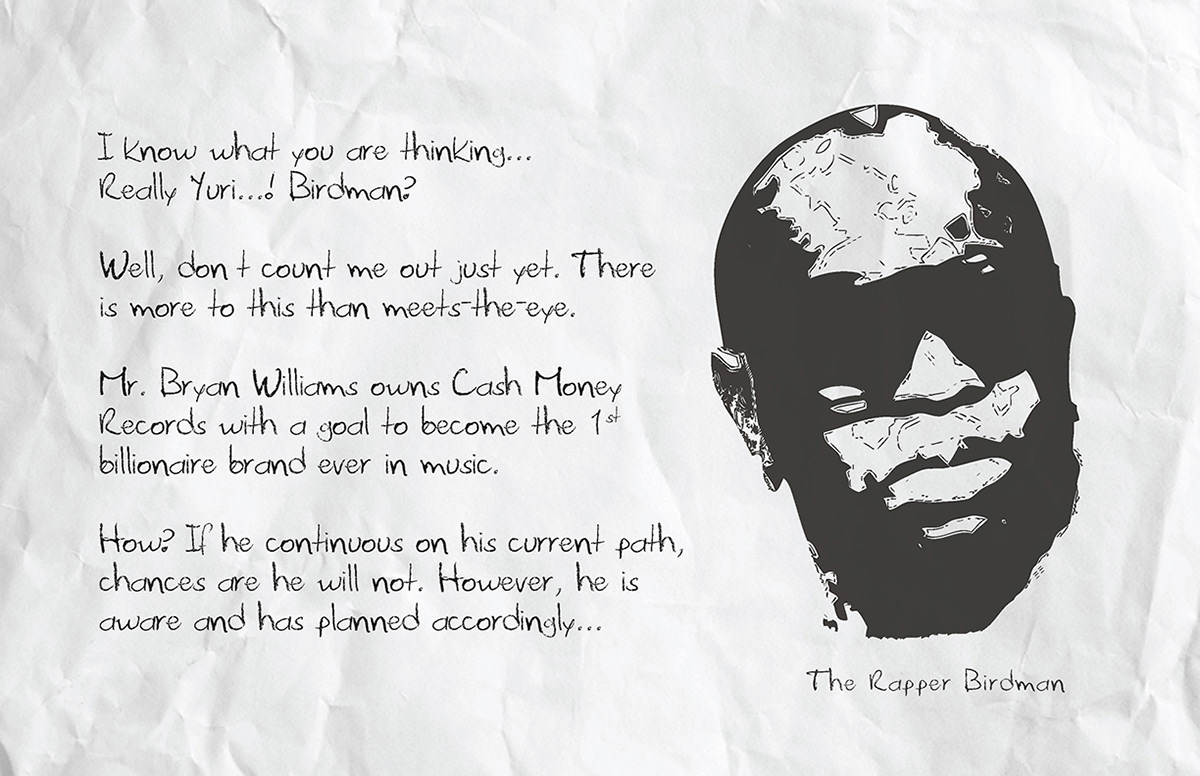 I know what you are thinking...
Really Yuri...! Birdman?
Well, don t count me out just yet. There
is more to this than meets-the-eye.
Mr. Bryan Williams owns Cash Money
Records with a goal to become the 1st
billionaire brand ever in music.
How? If he continuous on his current path,
chances are he will not. However, he is
aware and has planned accordingly...
The Rapper Birdman